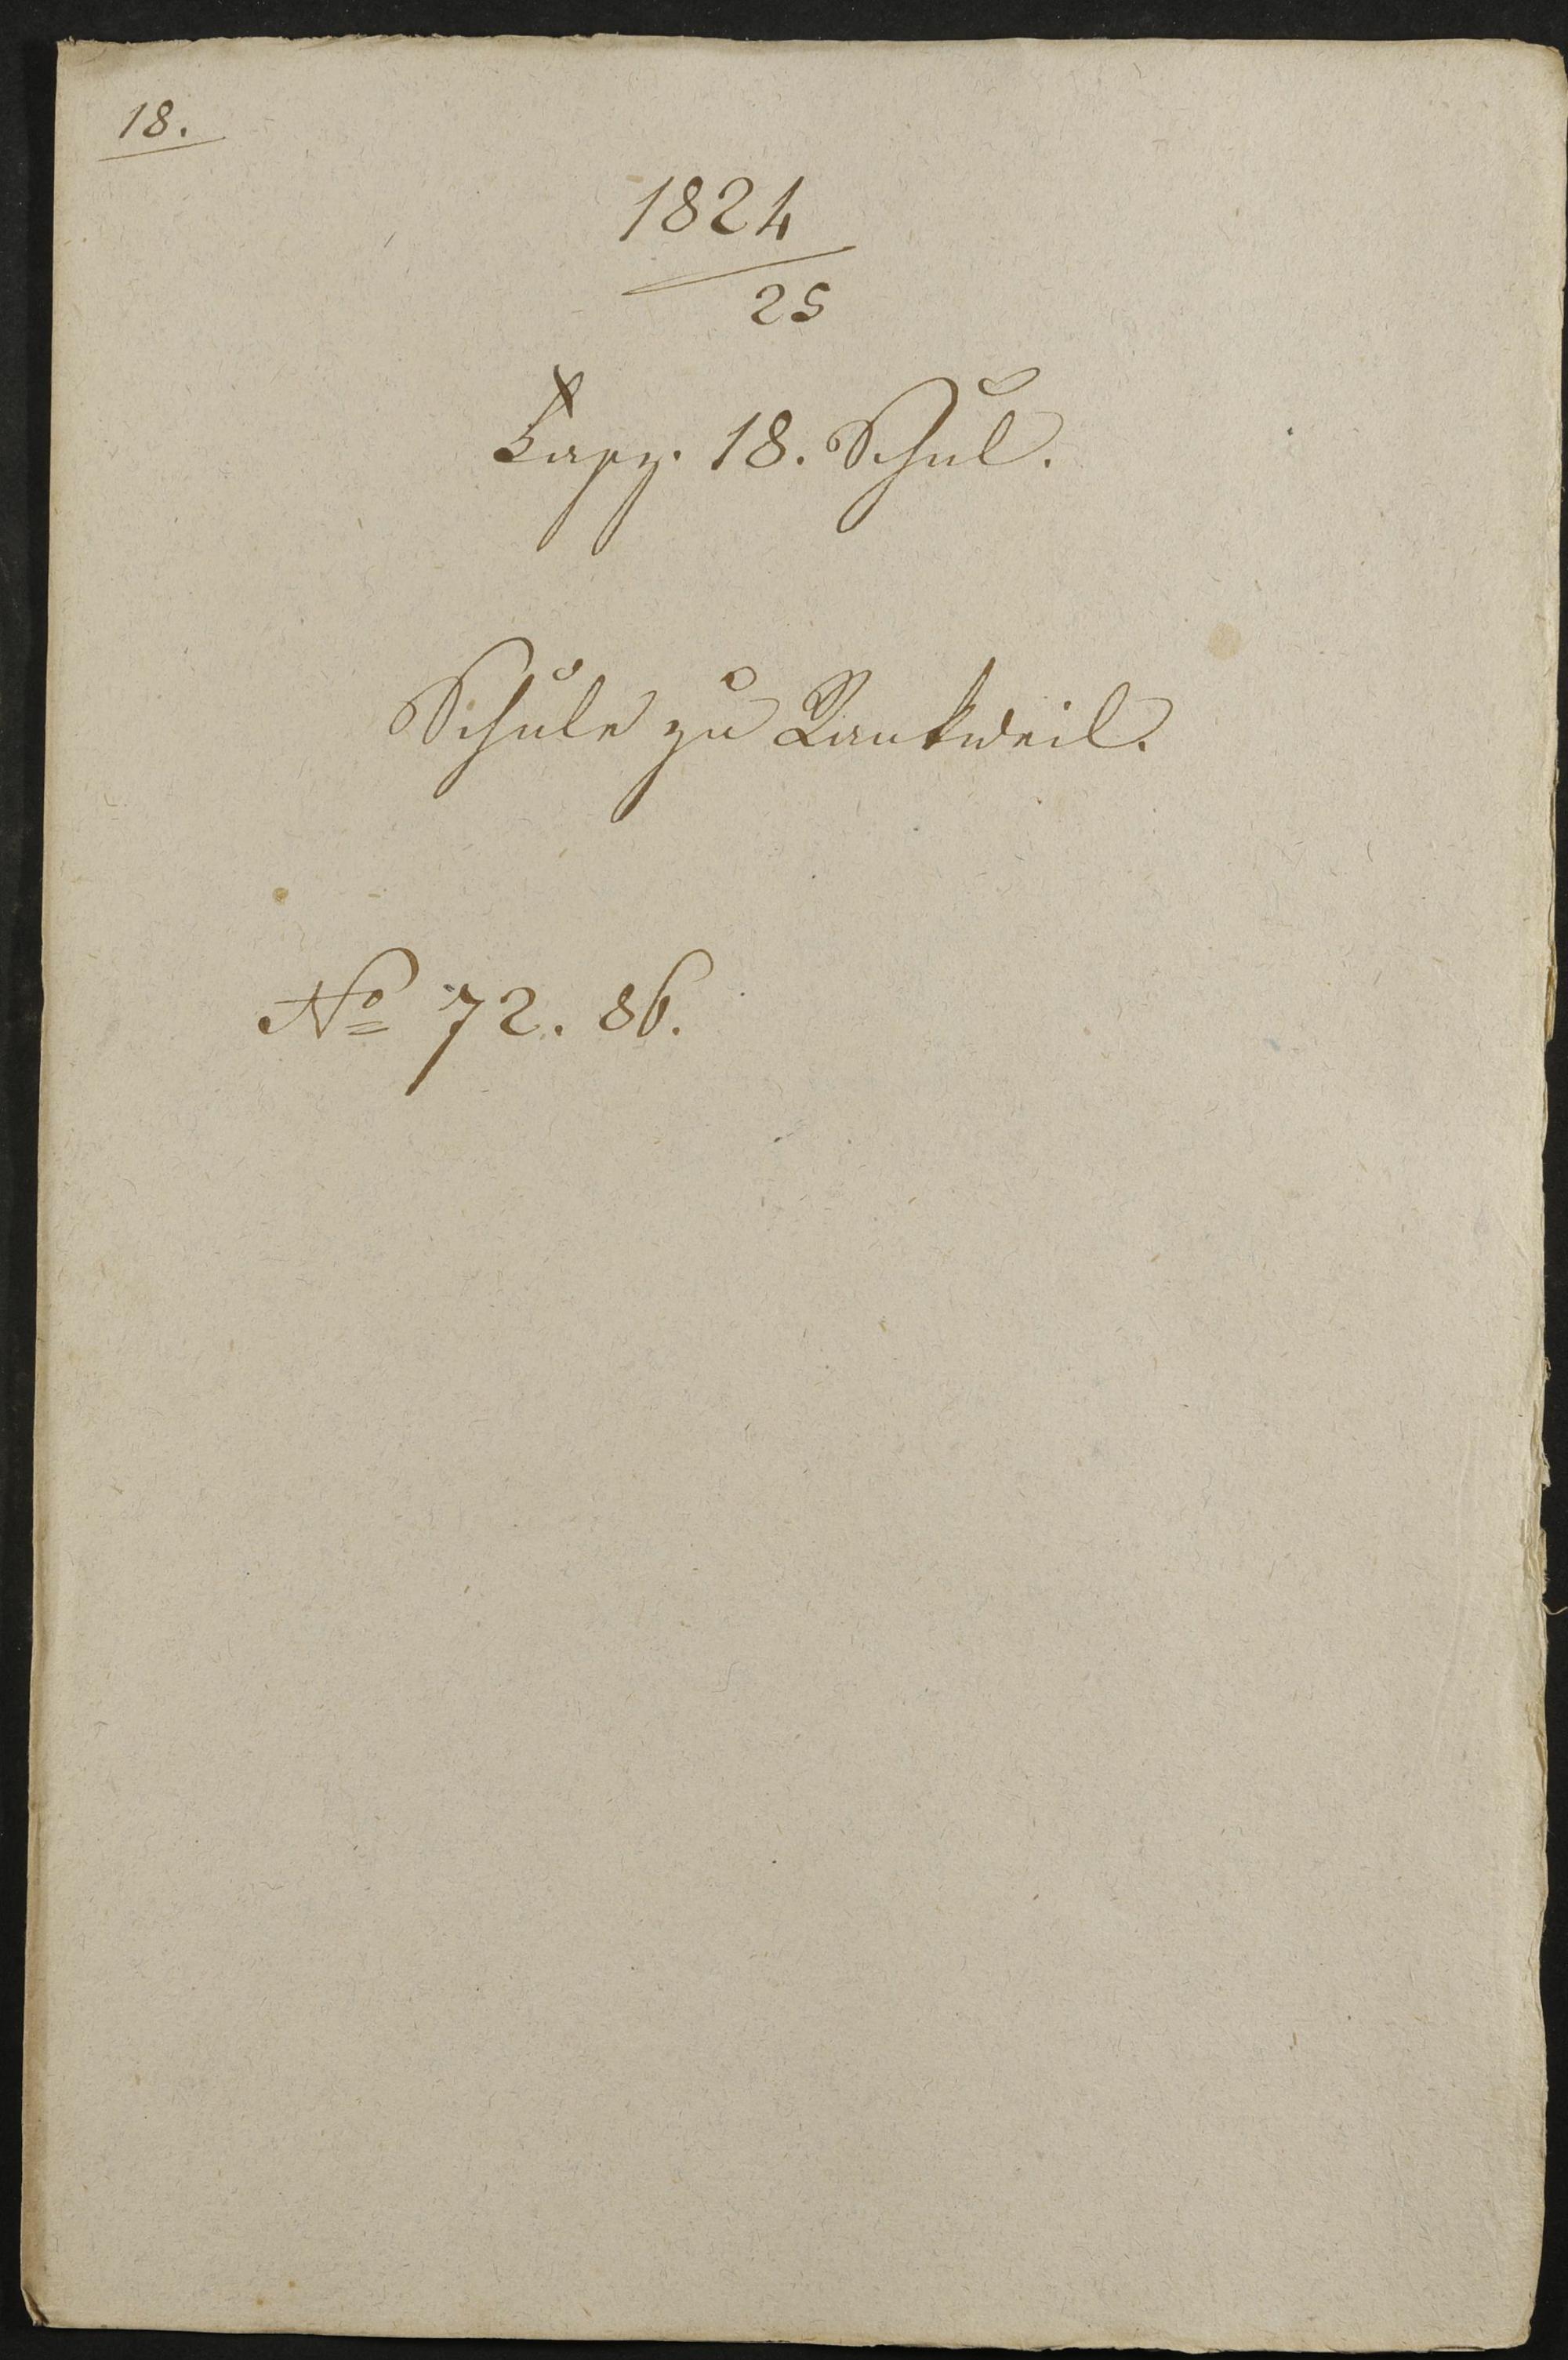 18.
1824
25
Fasz. 18. Schul.
Schule zu Rankweil.
No 72. 86.